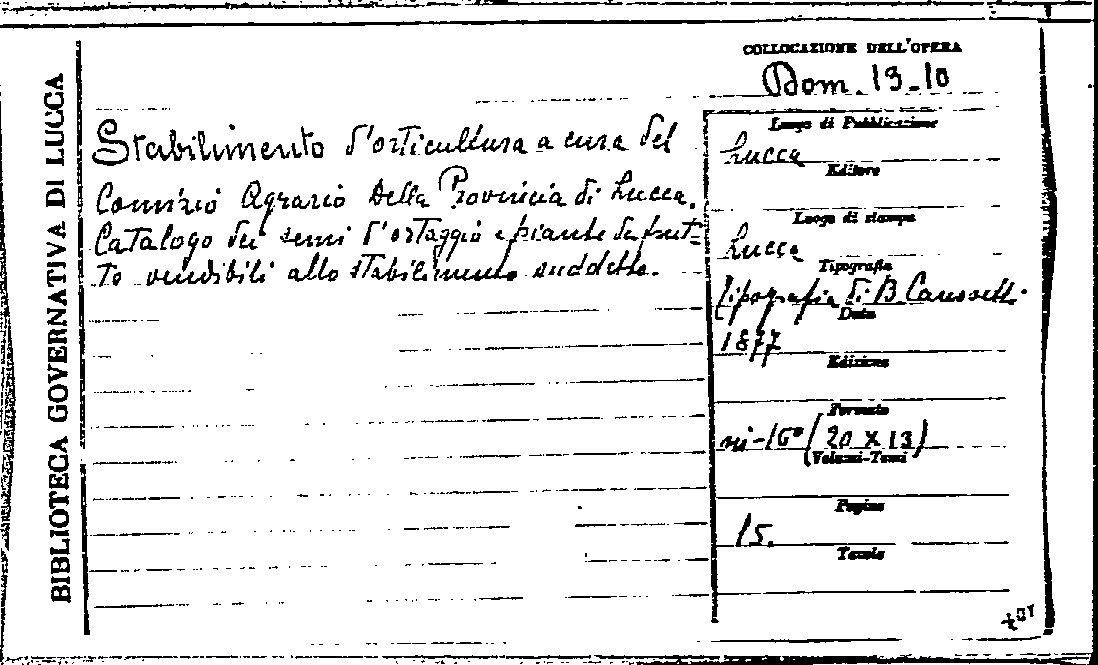 BIBLIOTECA GOVERNATIVA DI LUCCA
COLLOCAZIONE DELL'OPERA
Dom. 13-10
Stabilimento d'orticultura a cura del
Comizio Agrario della Provincia di Lucca.
Catalogo dei semi d'ortaggio e piante da frut-
to vendibili allo stabilimento suddetto.
Luogo di Pubblicazione
Lucca
Editore
Luogo di stampa
Lucca
Tipografia
Tipografia di B. Canovetti
Data
1877
Edizione
Formato
in-16° (20 X 13)
(Volumi-Tomi)
Pagine
15.
Tavole